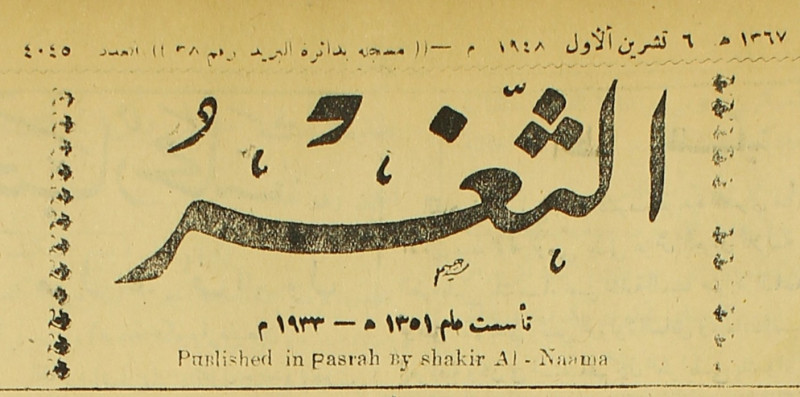 ١٣٦٧ ه ٦ تشرين الأول ١٩٤٨ م —(( مسجله بدائرة البريد رقم ٣٨ )) العدد ٤٠٤٥
الثَّغْرُ
تأسست عام ١٣٥١ ه — ١٩٣٣ م
Published in Basrah By shakir Al - Naama